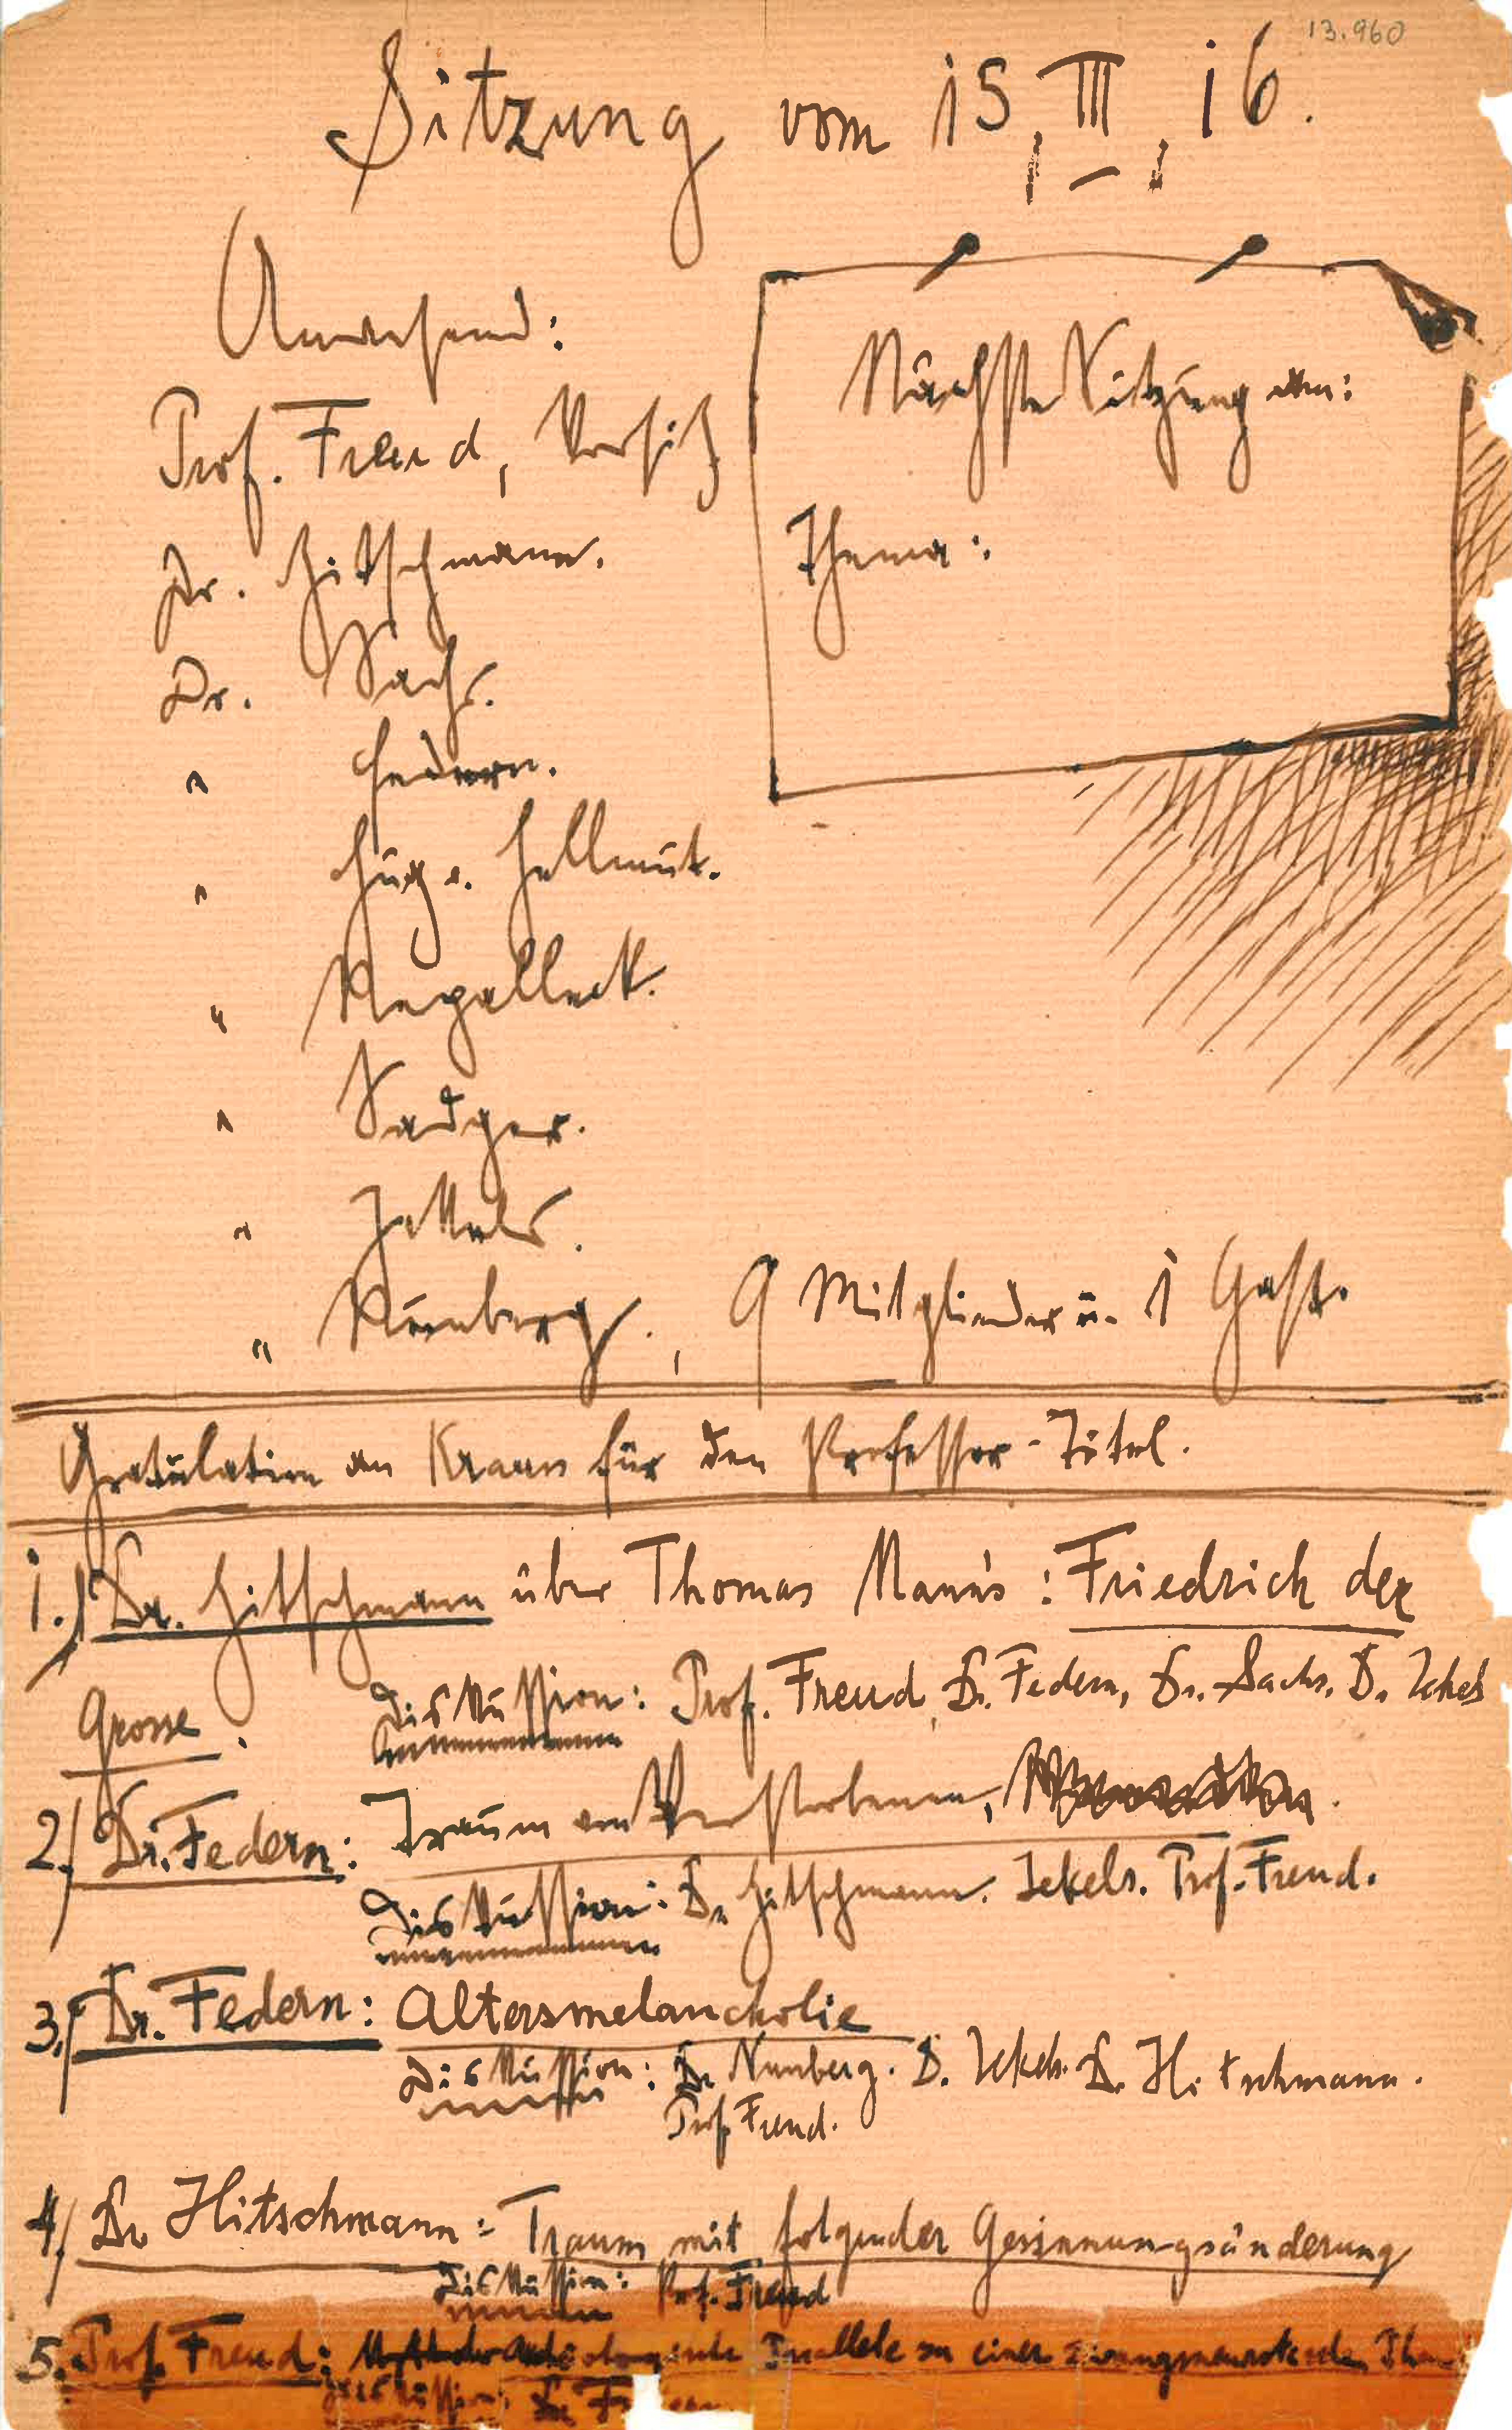 13.960
Sitzung vom 15, III, 16.
Anwesend:
Prof. Freud, Vorsitz
Dr. Hitschmann.
Dr. Sachs.
" Federn.
" Hug v. Hellmut.
"
" Sadger.
" Jekels.
" Nunberg., 9 Mitglieder u. 1 Gast.
Nächste Sitzung am:
Thema:
Gratulation an Kraus für den Professor-Titel.
1.) Dr. Hitschmann über Thomas Mann's: Friedrich der
Grosse. Diskussion: Prof. Freud, Dr. Federn, Dr. Sachs, D. Jekels
2./ Dr. Federn: Traum vom Verstorbenen,
Diskussion: Dr Hitschmann. Jekels. Prof. Freud.
3./ Dr. Federn: Altersmelancholie
Diskussion: Dr Nunberg. D. Jekels. D. Hitschmann.
Prof Freud.
4./ Dr Hitschmann: Traum mit folgender Gesinnungsänderung
Diskussion: Prof. Freud
5. Prof. Freud: Parallele zu einer
Diskussion: Dr